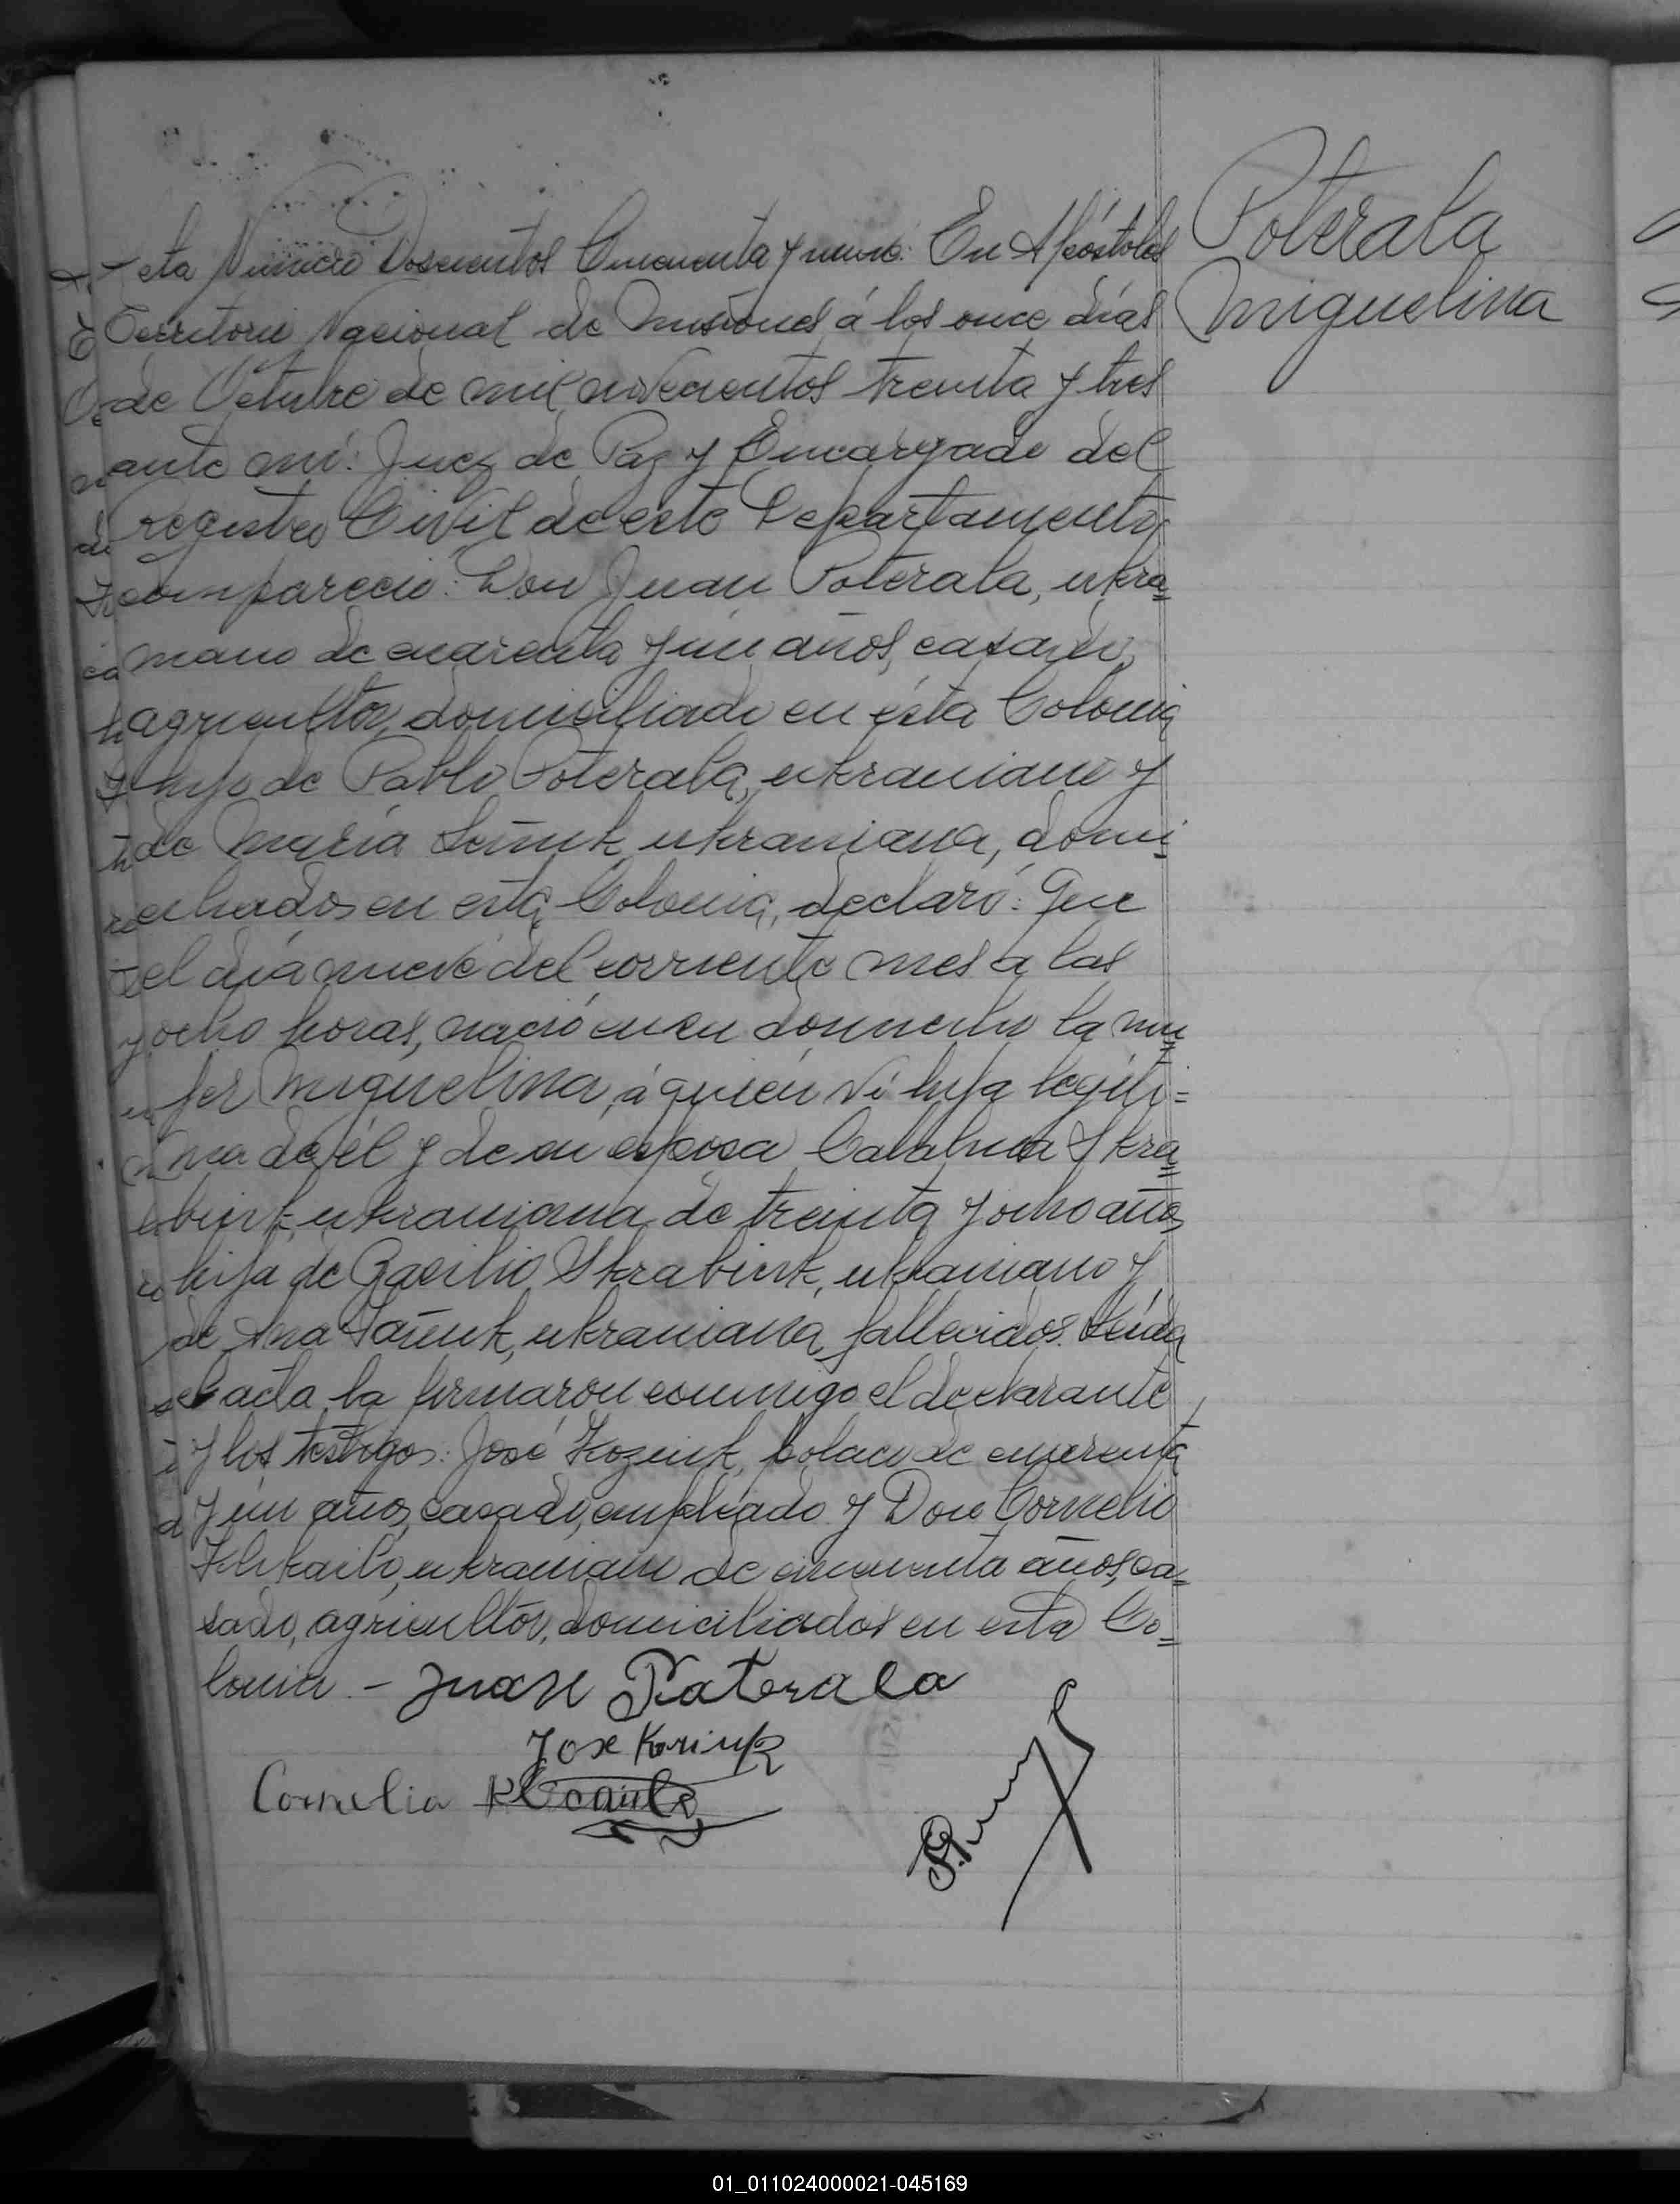 Poterala
Miguelina
Acta Número Doscientos Cincuenta y nueve: En Apóstoles
Territorio Nacional de Misiones á los once días
de Octubre de mil novecientos treinta y tres
ante mi: Juez de Paz y Encargado del
Registro Civil de este Departamento,
compareció: Don Juan Poterala, ukra=
niano de cuarenta y un años, casado,
agricultor, domiciliado en ésta Colonia
hijo de Pablo Poterala, ukraniano y
de María ukraniana, domi=
ciliados en esta Colonia, declaró: Que
el día nueve del corriente mes a las
ocho horas, nació en su domicilio la mu=
jer Miguelina, á quien ví hija legíti=
ma de él y de su esposa Catalina Skra=
biuk, ukraniana de treinta y ocho años
hija de Basilio Skrabiuk, ukraniano y
de Ana ukraniana, fallecidos. Leída
el acta la firmaron conmigo el declarante
y los testigos: José Koziuk, polaco de cuarenta
y un años, casado, empleado y Don Cornelio
ukraniano de cincuenta años, ca=
sado, agricultor, domiciliados en esta Co=
lonia. - Juan Paterala
Jose Koriuk
Cornelia
01_011024000021-045169